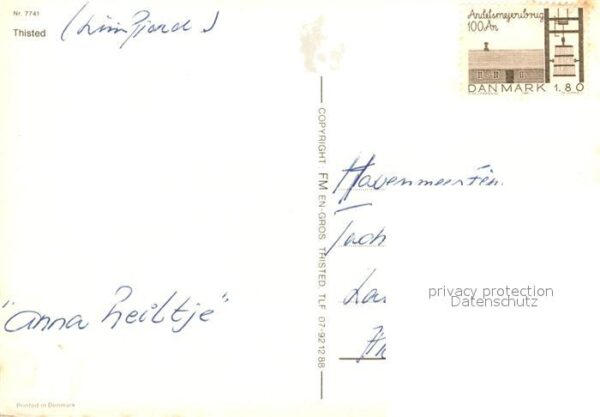 Nr. 7741
Thisted
(Limfjord)
Andelsmejeribrug
100 År
DANMARK 1.80
COPYRIGHT FM EN-GROS TRISTED TLF 07-921288
Havenmeester
Jach
La
privacy protection
Datenschutz
"Anna
Printed in Denmark